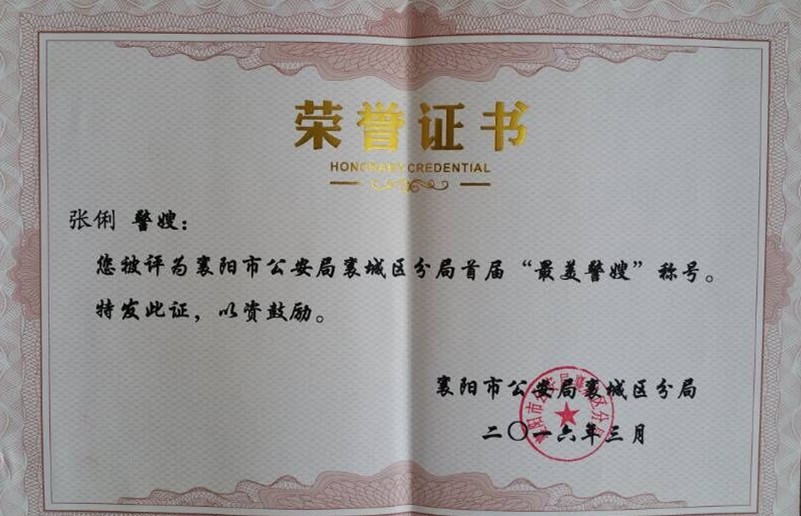 荣誉证书
HONORARY CREDENTIAL
张俐 警嫂：
您被评为襄阳市公安局襄城区分局首届“最美警嫂”称号。
特发此证，以资鼓励。
襄阳市公安局襄城区分局
二〇一六年三月